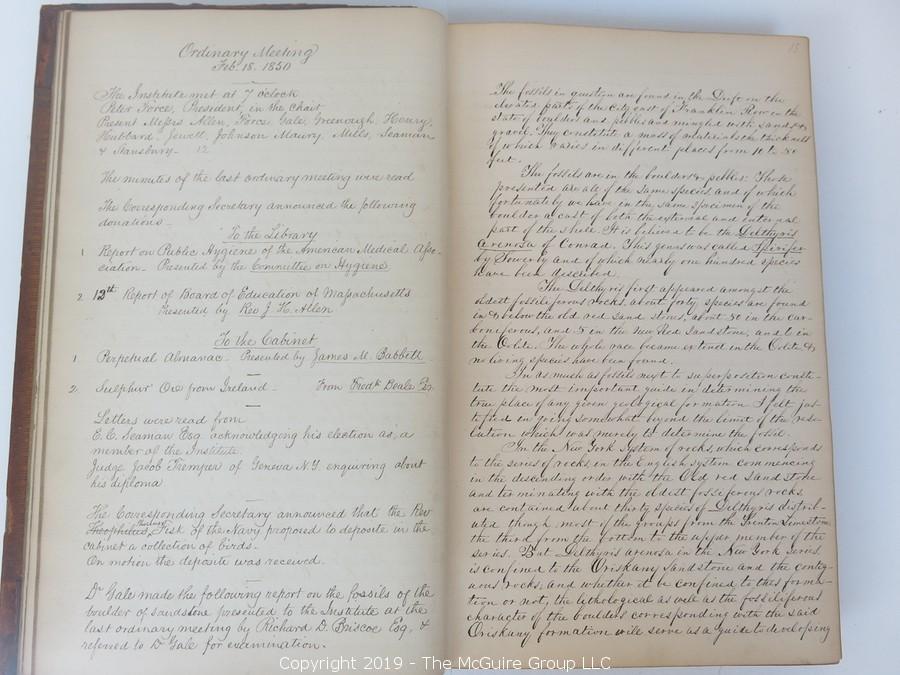 Ordinary Meeting
Feb. 18. 1850
The Institute met at 7 oclock
Peter Force, President, in the Chair
Present Messrs Allen, Force, Gale, Greenough, Henry,
Hubbard, Jewett, Johnson Maury, Mills, Seaman
& Stansbury. 12
The minutes of the last ordinary meeting were read
The Corresponding Secretary announced the following
donations
To the Library
1 Report on Public Hygiene of the American Medical Asso-
ciation - Presented by the Committee on Hygiene
2. 13th Report of Board of Education of Massachusetts
Presented by Rev J. H. Allen
To the Cabinet
1. Perpetual Almanac - Presented by James M. Babbitt
2. Sulphur Ore from Ireland - From Fredk Beale
Letters were read from
E. C. Seaman Esq acknowledging his election as, a
member of the Institute.
Judge Jacob Tremper of Geneva N.Y enquiring about
his diploma
The Corresponding Secretary announced that the Rev
Theophilus Fisk of the Navy proposed to deposite in the
cabinet a collection of birds.
On motion the deposite was received.
Dr Gale made the following report on the fossils of the
boulder of sandstone presented to the Institute at the
last ordinary meeting by Richard D. Briscoe Esq, &
referred to Dr Gale for examination.
15
The fossils in question are found in the Drift on the
elevated parts of the City east of Franklin Row in the
state of boulders and pebbles and mingled with sand &
gravel. They constitute a mass of materials the thickness
of which varies in different places from 10 to 80
feet.
The fossils are in the boulders & pebbles: Those
presented are all of the same species, and of which
fortunately we have in the same specimen of the
boulder a cast of both the external and internal
part of the shell. It is believed to be the Delthyris
Arenosa of Conrad. This genus was called Spirifer
by Sowerby and of which nearly one hundred species
have been described.
The Delthyris first appeared amongst the
oldest fossiliferous rocks, about forty species are found
in & below the old red sand stone, about 50 in the car-
boniferous, and 5 in the new Red Sandstone, and 6 in
the Oolite. The whole race became extinct in the Oolite &
no living species have been found.
In as much as fossils next to superposition consti-
tute the most important guide in determining the
true place of any given geological formation I felt jus-
tified in going somewhat beyond the limit of the reso-
lution which was merely to determine the fossil.
In the New York System of rocks, which corresponds
to the series of rocks in the English system commencing
in the descending order with the Old red sand stone
and terminating with the oldest fossiliferous rocks,
are contained about thirty species of Delthyris distrib-
uted though most of the groups from the Trenton Limestone
the third from the bottom to the upper member of the
series. But Delthyris arenosa in the New York Series,
is confined to the Oriskany Sandstone and the contig-
uous rocks, and whether it be confined to this forma-
tion or not, the lithological as well as the fossiliferous
character of the boulders corresponding with the said
Oriskany formation will serve as a guide to developing
Copyright 2019 - The McGuire Group LLC